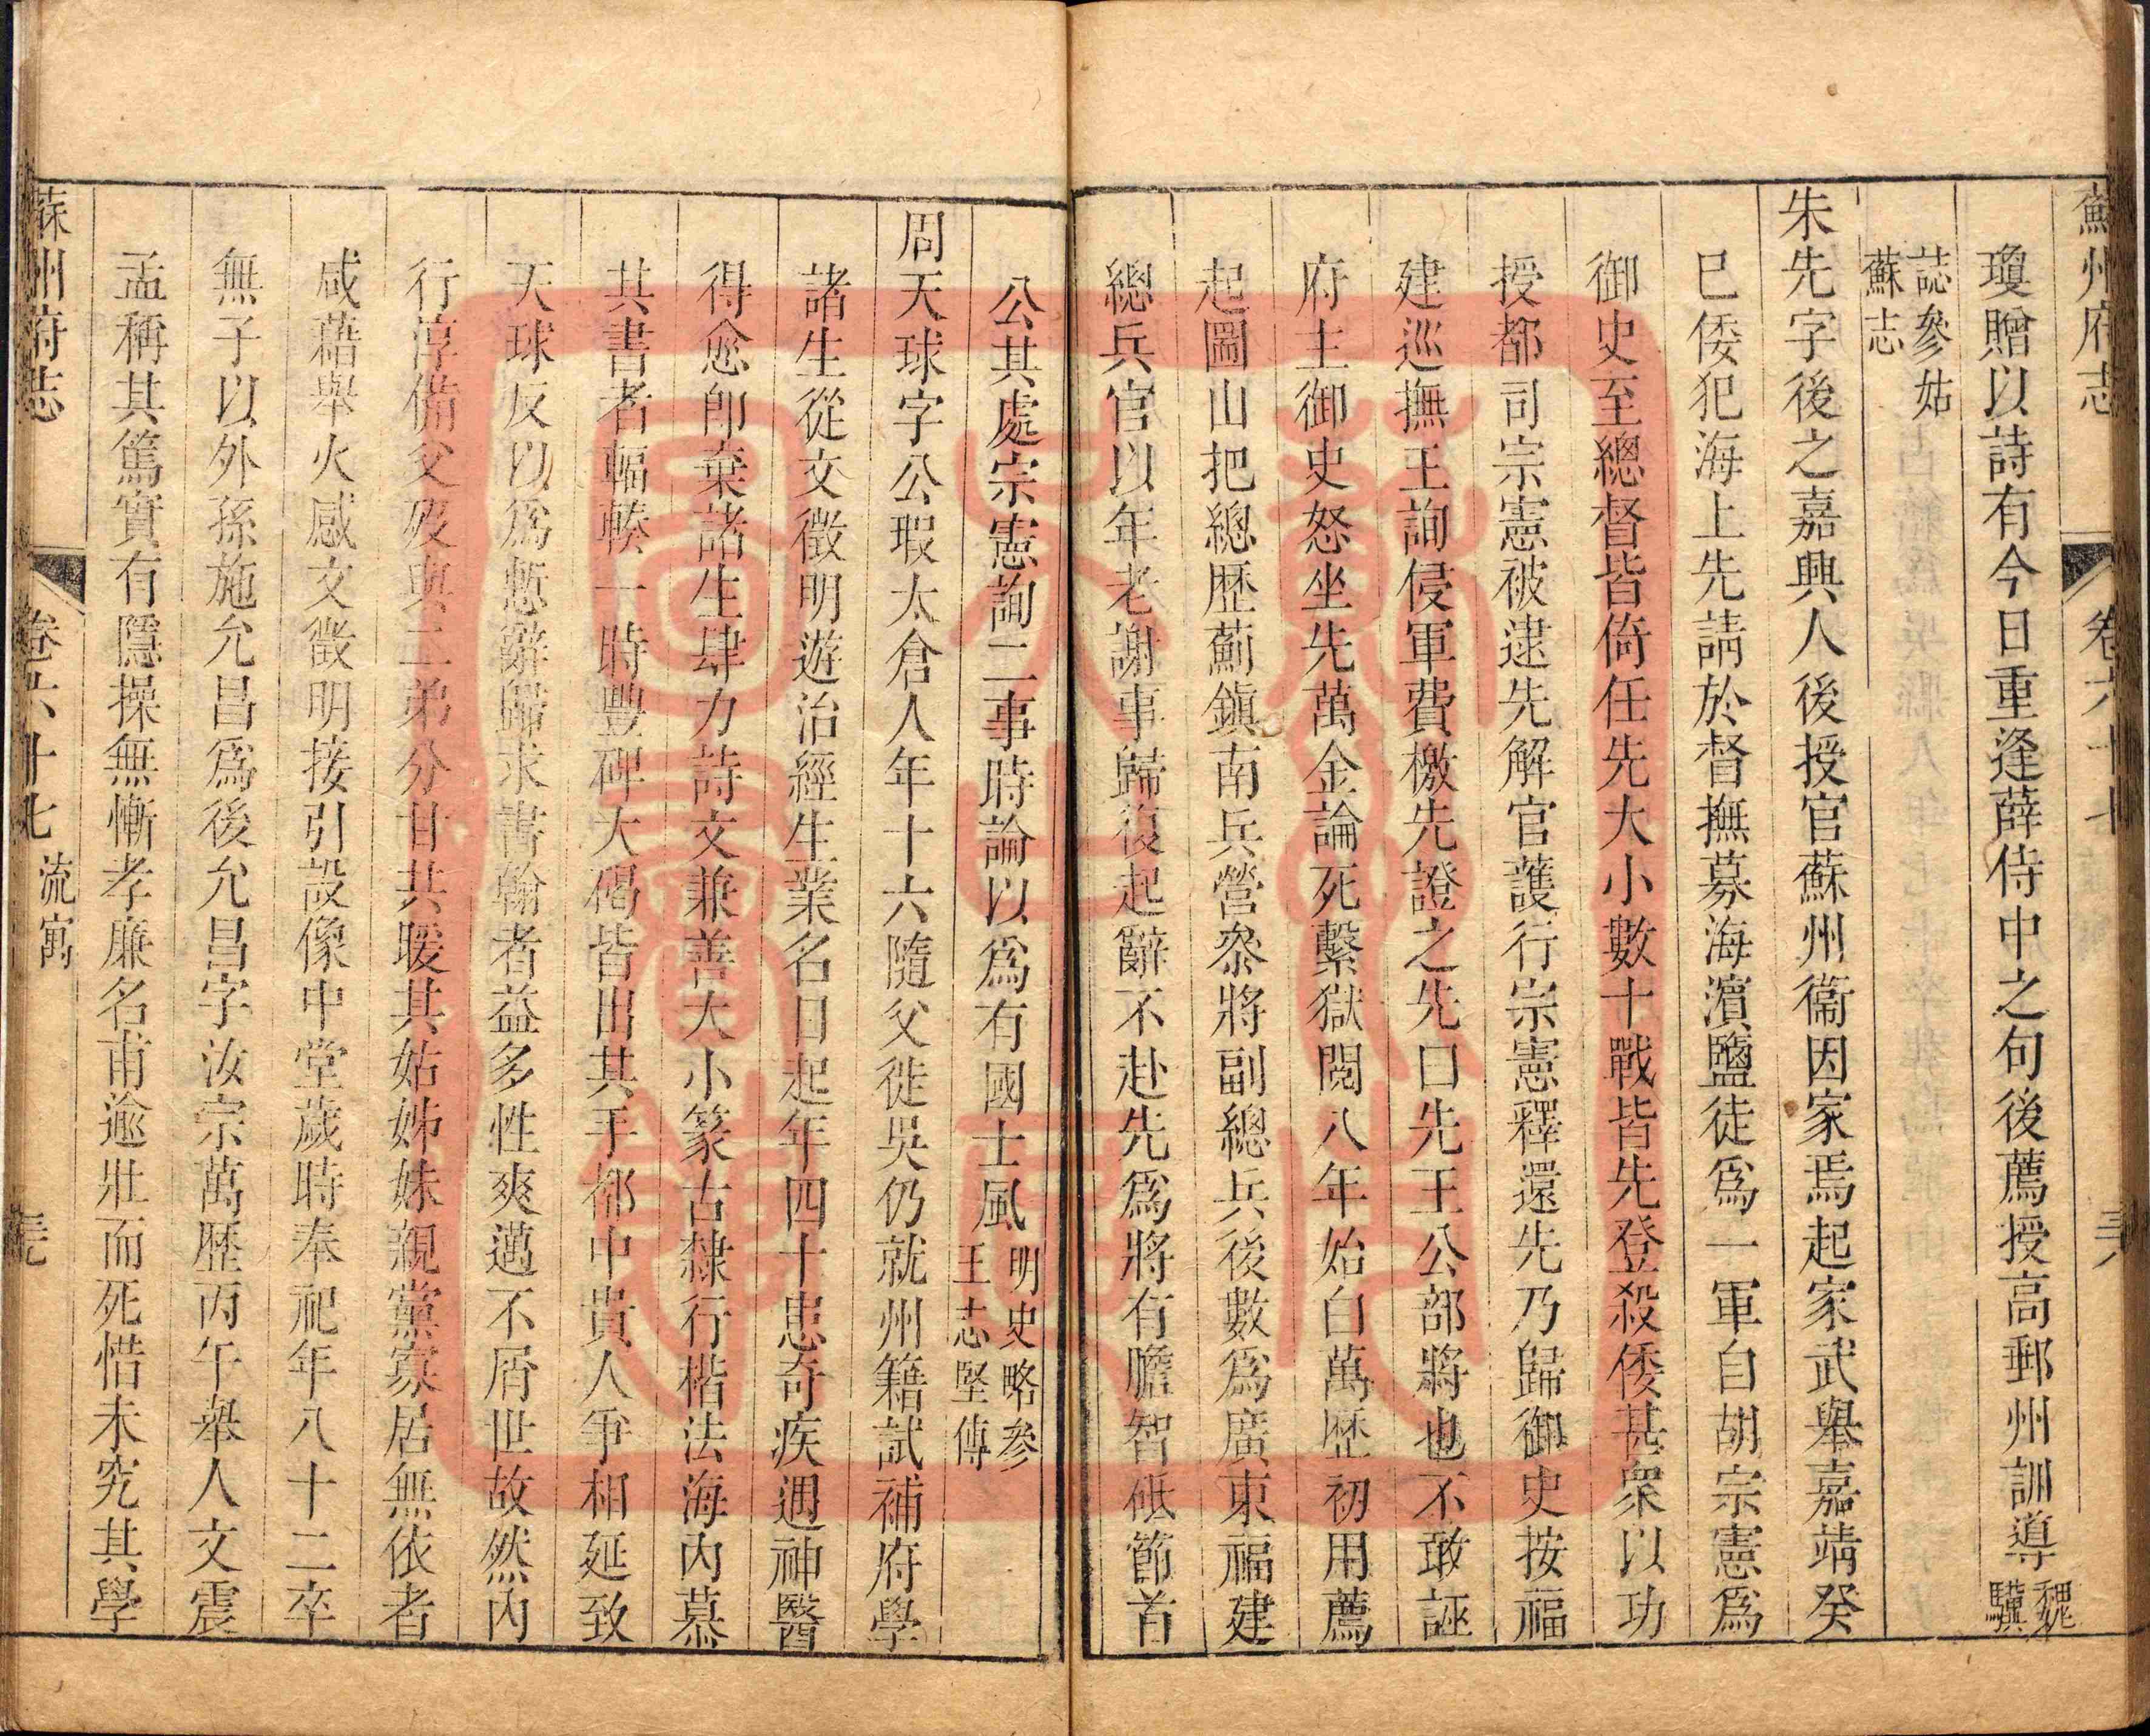 蘇州府志 卷六十七
瓊贈以詩有今日重逢薛侍中之句後薦授高郵州訓導魏驥
誌參姑
蘇志
朱先字後之嘉興人後授官蘇州衞因家焉起家武舉嘉靖癸
巳倭犯海上先請於督撫募海濱鹽徒爲一軍自胡宗憲爲
御史至總督皆倚任先大小數十戰皆先登殺倭甚衆以功
授都司宗憲被逮先解官護行宗憲釋還先乃歸御史按福
建巡撫王詢侵軍費檄先證之先曰先王公部將也不敢誣
府主御史怒坐先萬金論死繫獄閱八年始白萬歷初用薦
起圖山把總歷薊鎭南兵營叅將副總兵後數爲廣東福建
總兵官以年老謝事歸復起辭不赴先爲將有膽智砥節首
公其處宗憲詢二事時論以爲有國士風明史略參
王志堅傳
周天球字公瑕太倉人年十六隨父徙吳仍就州籍試補府學
諸生從文徵明遊治經生業名日起年四十患奇疾遇神醫
得愈卽棄諸生肆力詩文兼善大小篆古隸行楷法海內慕
其書者輻輳一時豐碑大碣皆出其手都中貴人爭相延致
天球反以爲慙辭歸求書翰者益多性爽邁不屑世故然內
行淳備父歿與二弟分甘共暖其姑姊妹親黨寡居無依者
咸藉舉火感文徵明接引設像中堂歲時奉祀年八十二卒
無子以外孫施允昌爲後允昌字汝宗萬歷丙午舉人文震
孟稱其篤實有隱操無慚孝廉名甫逾壯而死惜未究其學
蘇州府志 卷六十七 流寓